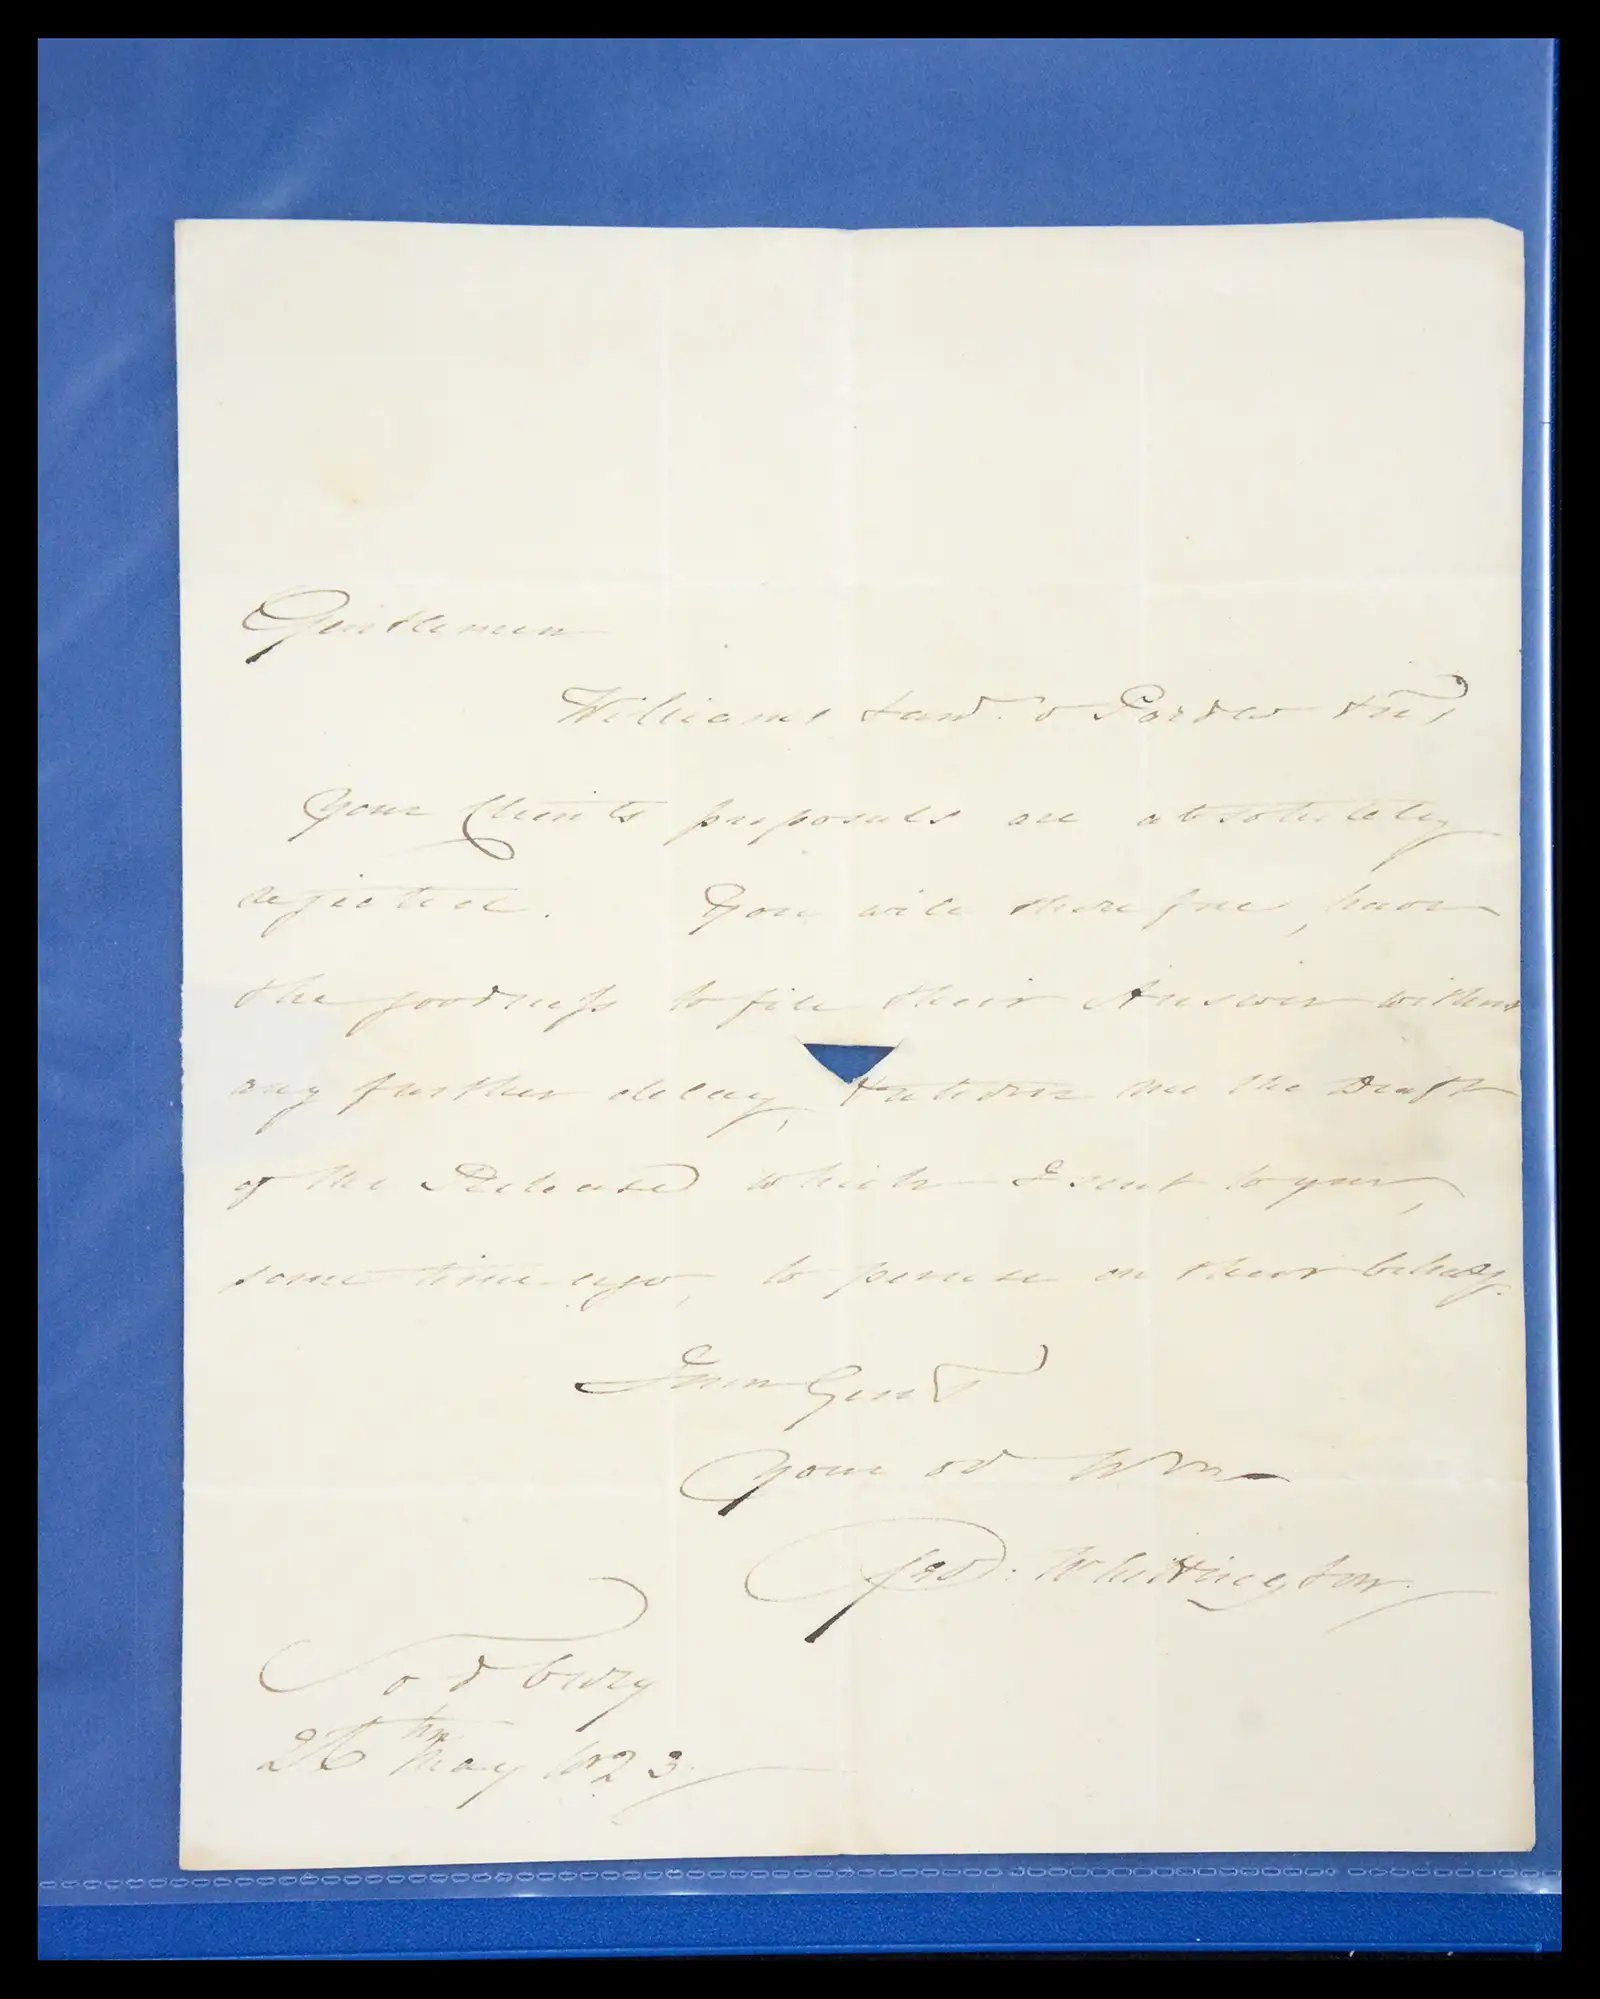 Gentlemen
Williams & and.r v Pardew & Ux.r
Your Clients proposals are absolutely
rejected. You will therefore, have
the goodness to file their Answer without
any further delay, & return me the Draft
of the Release which I sent to you,
some time ago, to peruse on their behalf.
I am Gent
Your ob
Whittington
Sodbury
26th May 1823